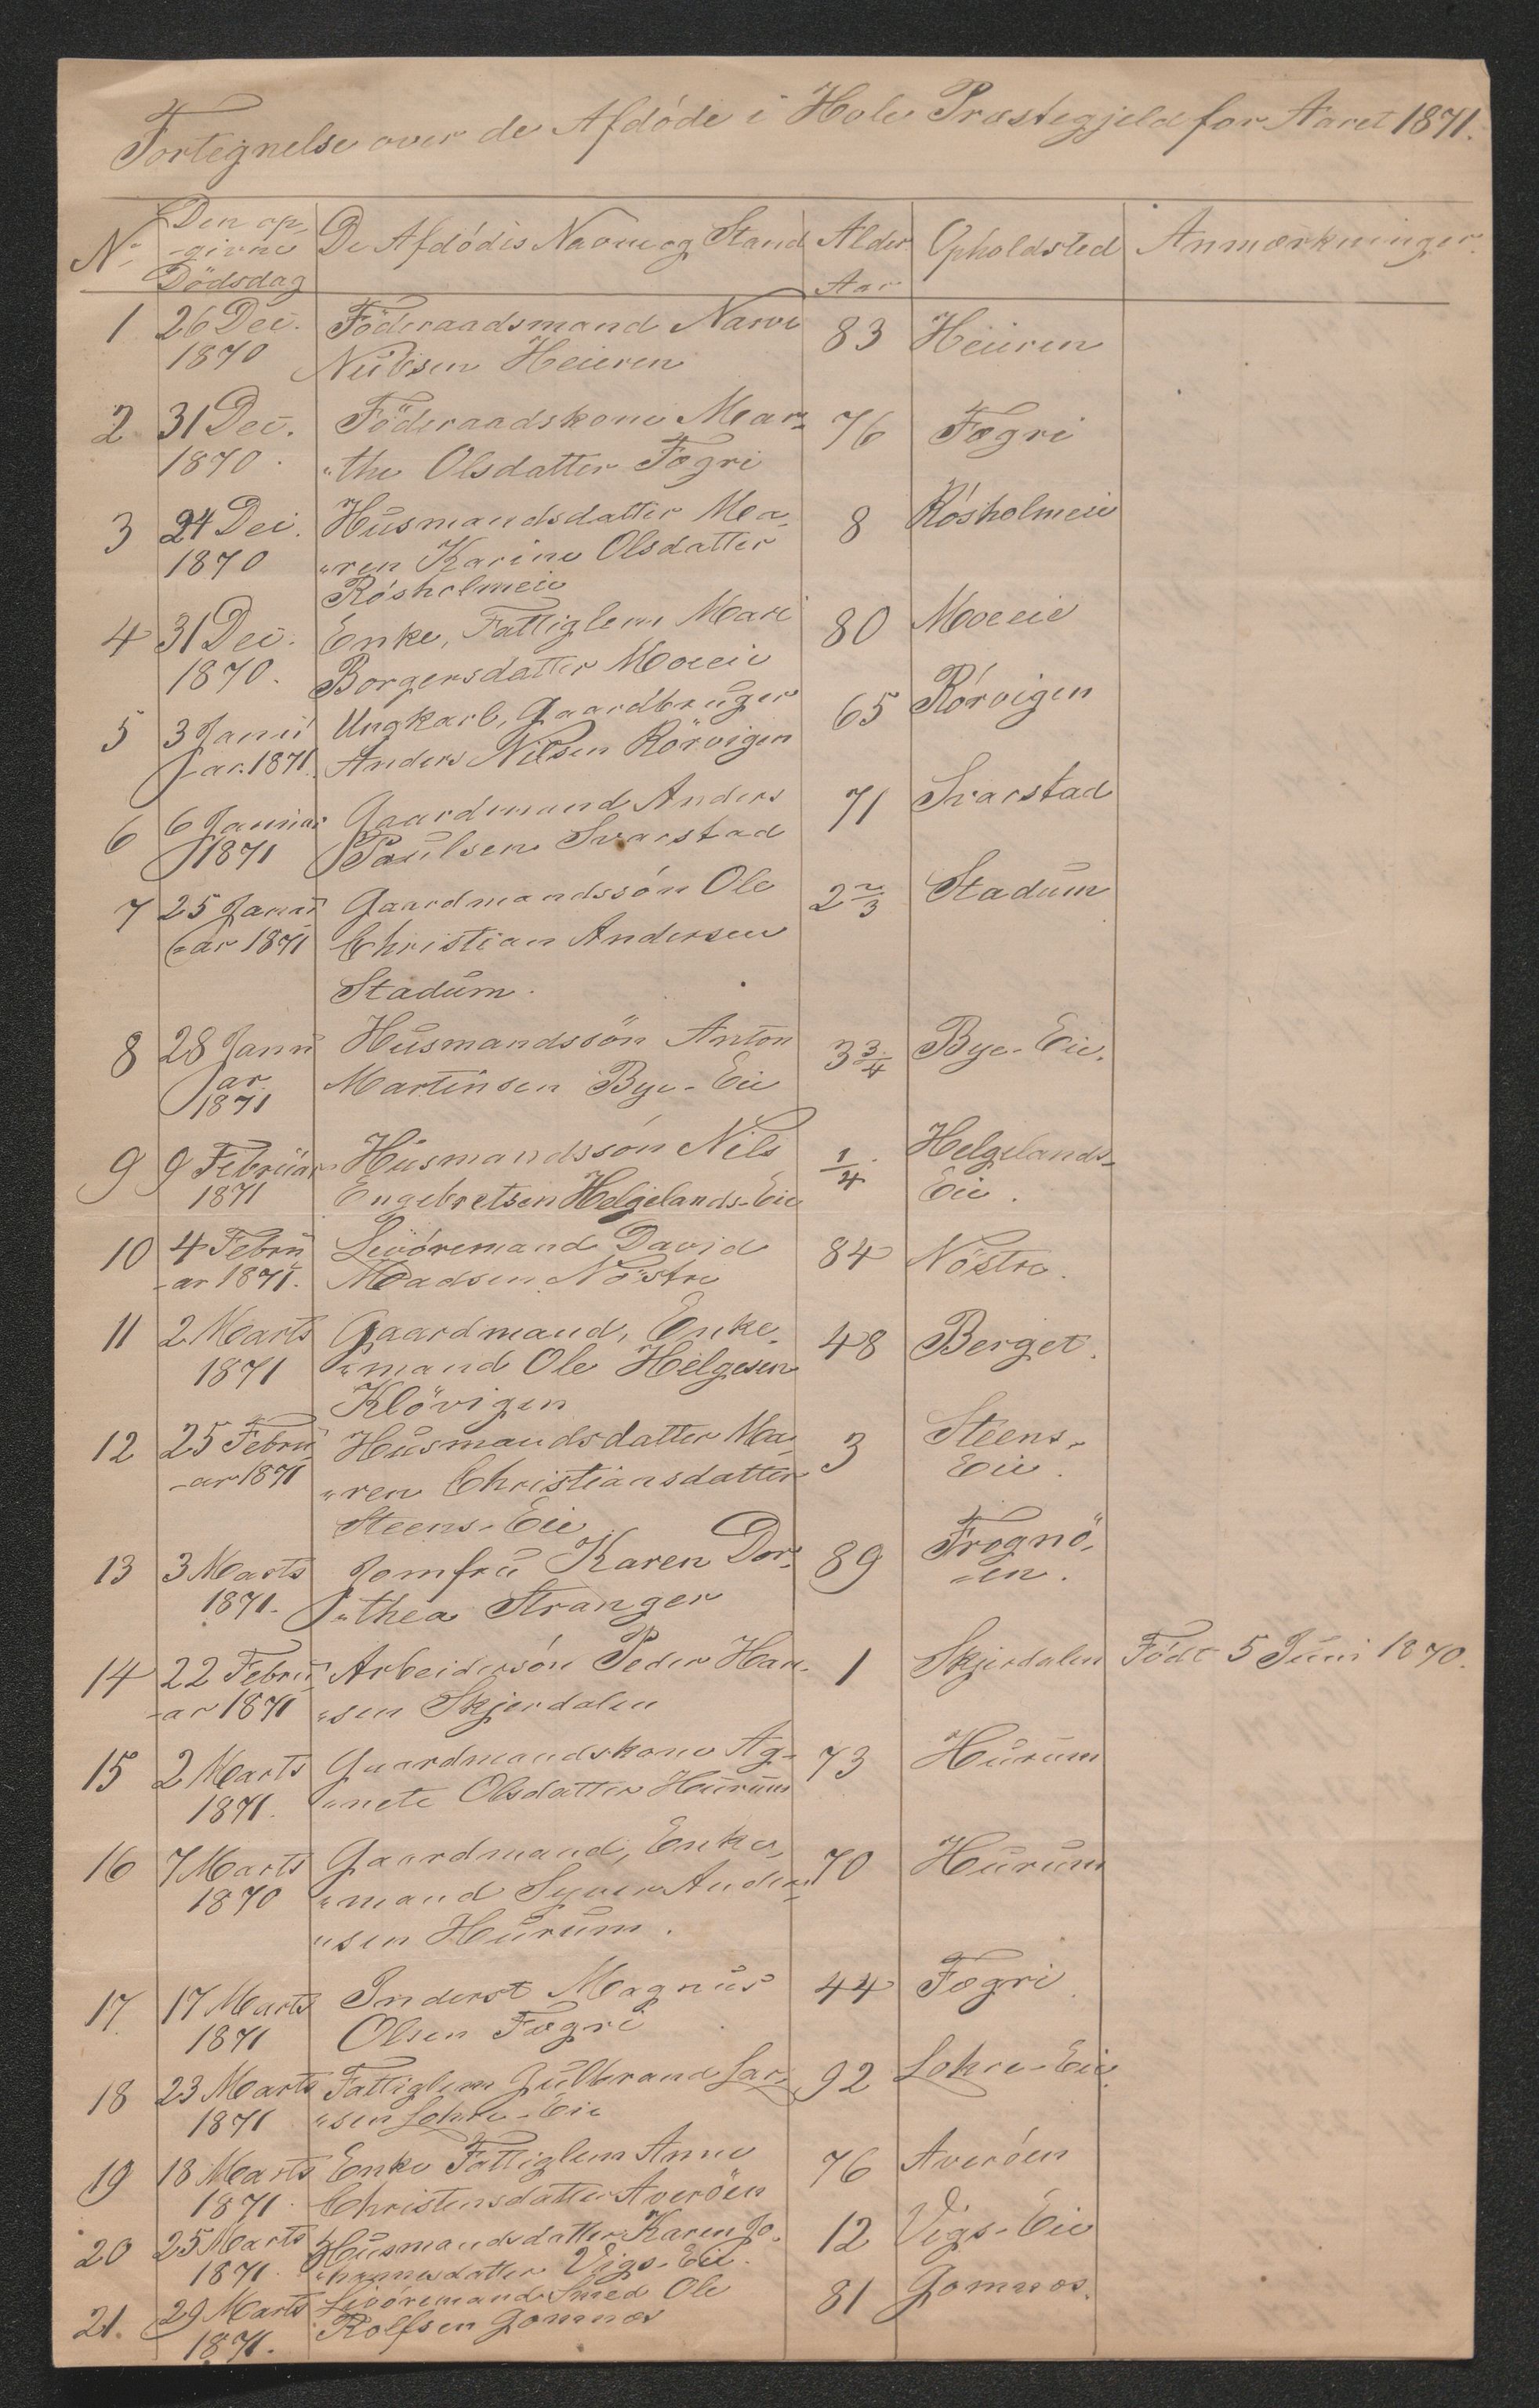 Fortegnelse over de Afdöde i Hole Præstegjeld for Aaret 1871.
No Den op- De Afdödes Navn og Stand Alder Opholdsted Anmærkninger.
-givne
Dödsdag Aar
1 26 Dec. Föderaadsmand Narve 83 Heieren
1870 Nubsen Heieren
2 31 Dec. Föderaadskone Mar- 76 Fægri
1870. "the Olsdatter Fægri
3 24 Dec. Husmandsdatter Ma- 8 Rösholmeie
1870 "ren Karine Olsdatter
Rösholmeie
4 31 Dec. Enke, Fattiglem Mari 80 Moeeie
1870. Borgersdatter Moeeie
5 3 Janu- Ungkarl, Gaardbruger 65 Rörvigen
ar. 1871. Anders Nilsen Rörvigen
6 6 Januar Gaardmand Anders 71 Svarstad
1871 Paulsen Svarstad
7 25 Janu- Gaardmandssön Ole 2 2/3 Stadum
-ar 1871 Christian Andersen
Stadum.
8 28 Janu- Husmandssön Anton 3 3/4 Bye-Eie.
ar Martinsen Bye-Eie
1871
9 9 Februar Husmandssön Nils 1/4. Helgelands-
1871 Engebretsen Helgelands-Eie Eie.
10 4 Febru- Livöremand David 84 Nöstre.
-ar 1871. Madsen Nöstre
11 2 Marts Gaardmand, Enke- 48 Berget.
1871 "mand Ole Helgesen
Klövigen
12 25 Febru- Husmandsdatter Ma- 3 Steens-
-ar 1871 "ren Christiansdatter Eie.
Steens-Eie
13 3 Marts Jomfru Karen Dor- 89 Frognö-
1871. "thea Stranger -en.
14 22 Febru- Arbeidersön Peder Han- 1 Skjerdalen Födt 5 Juni 1870.
-ar 1871 "sen Skjerdalen
15 2 Marts Gaardmandskone Ag- 73 Hurum
1871. "nete Olsdatter Hurum
16 7 Marts Gaardmand, Enke- 70 Hurum
1870 "mand Syver Ander-
"sen Hurum.
17. 17 Marts Inderst Magnus 44 Fægri
1871 Olsen Fægri
18 23 Marts Fattiglem Gulbrand Lar- 92 Lohre-Eie.
1871 "sen Lohre-Eie
19 18 Marts Enke Fattiglem Anne 76 Averöen
1871. Christensdatter Averöen
20 25 Marts Husmandsdatter Karen Jo- 12 Vigs-Eie
1871. "hannesdatter Vigs-Eie.
21. 29 Marts Livöremand Smed Ole 81 Gomnæs.
1871. Rolfsen Gomnæs